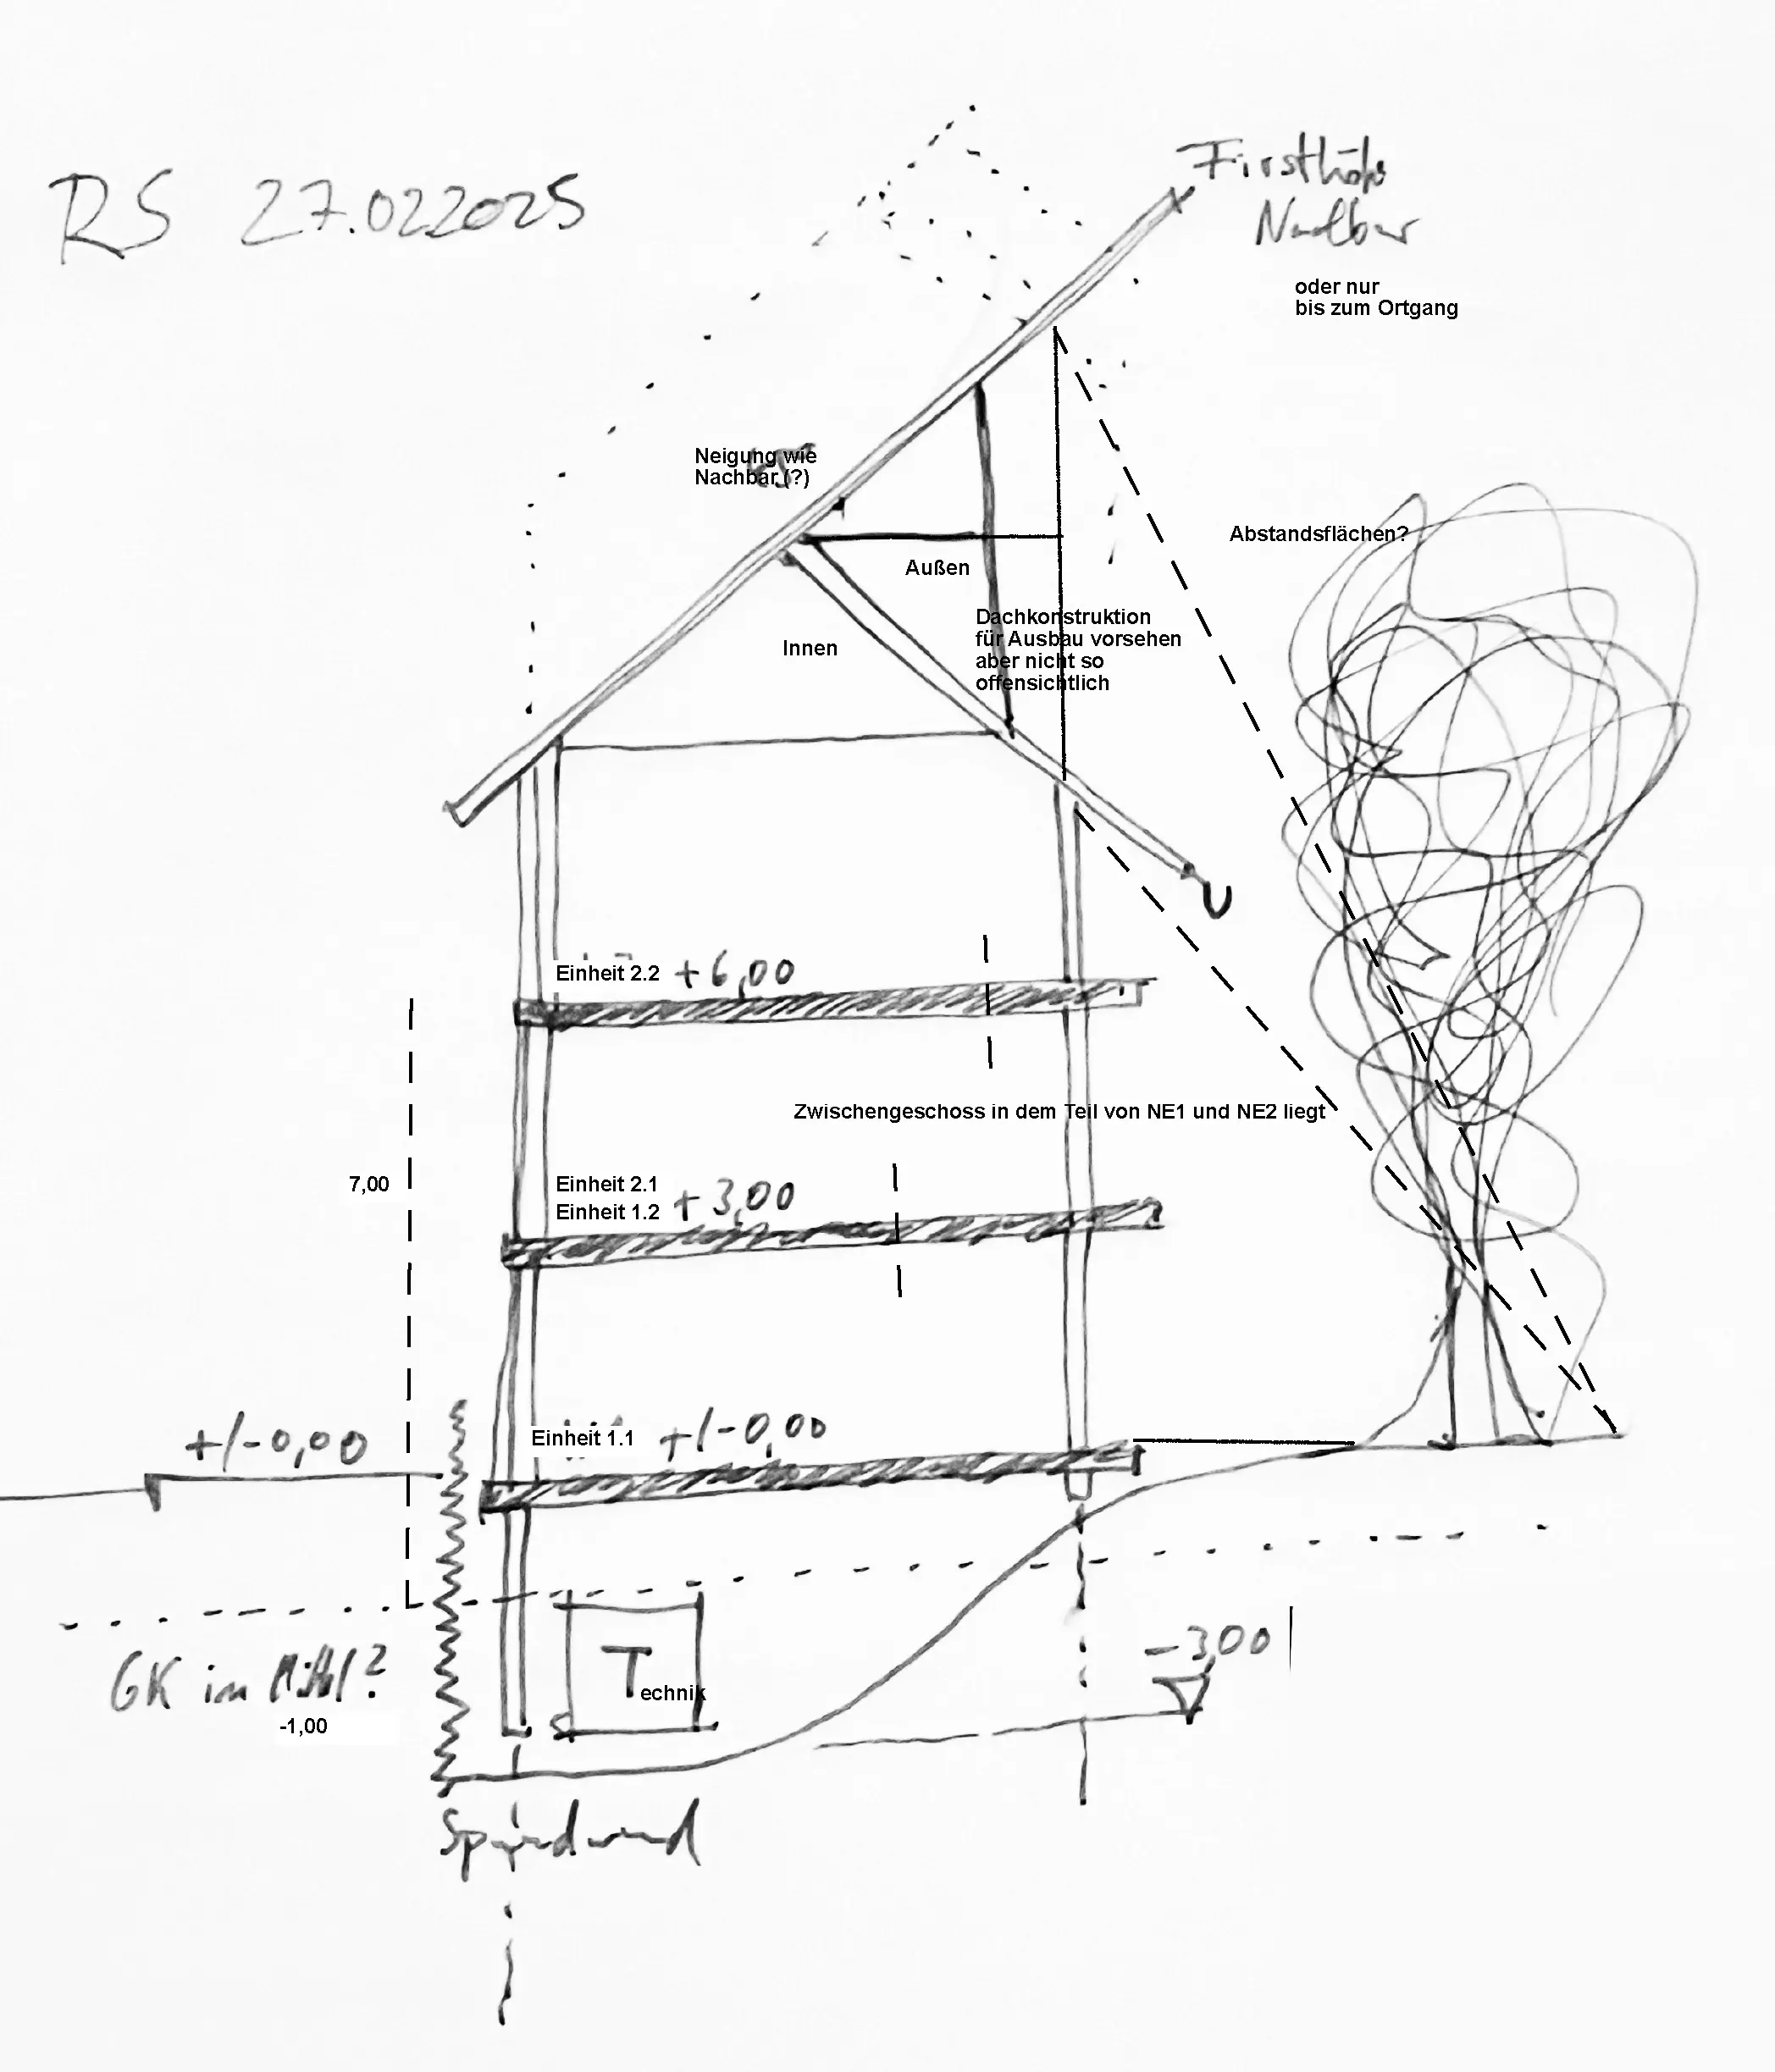 RS 27.022025
Firsthöhe
Nachbar
oder nur
bis zum Ortgang
Neigung wie
Nachbar (?)
Abstandsflächen?
Außen
Innen
Dachkonstruktion
für Ausbau vorsehen
aber nicht so
offensichtlich
Einheit 2.2 +6,00
Zwischengeschoss in dem Teil von NE1 und NE2 liegt
7,00
Einheit 2.1
Einheit 1.2 +3,00
+/-0,00
Einheit 1.1 +/-0,00
GK im Mittel?
-1,00
Technik
-3,00
Spundwand